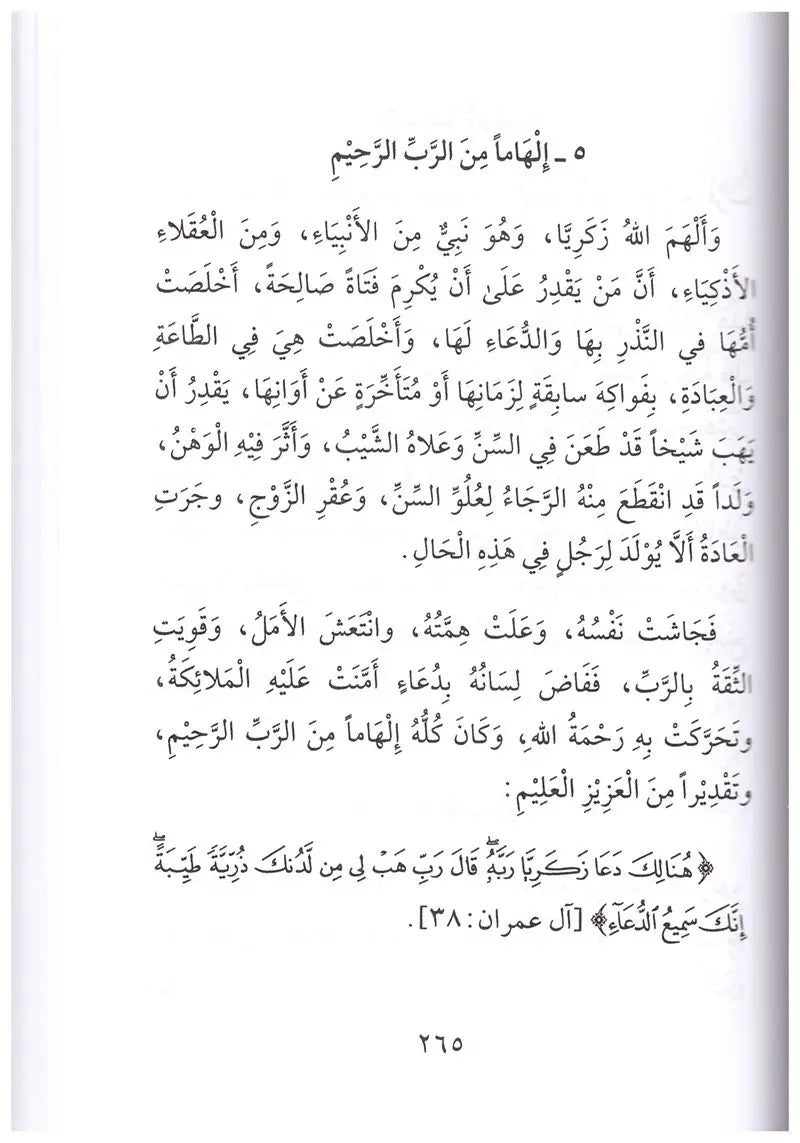 ٥ ـ إِلْهَاماً مِنَ الرَّبِّ الرَّحِيْمِ
وَأَلْهَمَ اللهُ زَكَرِيَّا، وَهُوَ نَبِيٌّ مِنَ الأَنْبِيَاءِ، وَمِنَ الْعُقَلاءِ
الأَذْكِيَاءِ، أَنَّ مَنْ يَقْدِرُ عَلَىٰ أَنْ يُكْرِمَ فَتَاةً صَالِحَةً، أَخْلَصَتْ
أُمُّهَا في النَّذْرِ بِهَا وَالدُّعَاءِ لَهَا، وَأَخْلَصَتْ هِيَ فِي الطَّاعَةِ
وَالْعِبَادَةِ، بِفَواكِهَ سابِقَةٍ لِزَمَانِهَا أَوْ مُتَأَخِّرَةٍ عَنْ أَوَانِهَا، يَقْدِرُ أَنْ
يَهَبَ شَيْخاً قَدْ طَعَنَ فِي السِّنِّ وَعَلاهُ الشَّيْبُ، وَأَثَّرَ فِيْهِ الْوَهْنُ،
وَلَداً قَدِ انْقَطَعَ مِنْهُ الرَّجَاءُ لِعُلُوِّ السِّنِّ، وَعُقْرِ الزَّوْجِ، وجَرَتِ
الْعَادَةُ أَلَّا يُوْلَدَ لِرَجُلٍ فِي هَذِهِ الْحَالِ.
فَجَاشَتْ نَفْسُهُ، وَعَلَتْ هِمَّتُهُ، وانْتَعَشَ الأَمَلُ، وَقَوِيَتِ
الثِّقَةُ بِالرَّبِّ، فَفَاضَ لِسَانُهُ بِدُعَاءٍ أَمَّنَتْ عَلَيْهِ الْمَلائِكَةُ،
وتَحَرَّكَتْ بِهِ رَحْمَةُ اللهِ، وَكَانَ كُلُّهُ إِلْهَاماً مِنَ الرَّبِّ الرَّحِيْمِ،
وتَقْدِيْراً مِنَ الْعَزِيْزِ الْعَلِيْمِ:
﴿هُنَالِكَ دَعَا زَكَرِيَّا رَبَّهُۥۖ قَالَ رَبِّ هَبْ لِى مِن لَّدُنكَ ذُرِّيَّةً طَيِّبَةًۖ
إِنَّكَ سَمِيعُ ٱلدُّعَآءِ﴾ [آل عمران: ٣٨].
٢٦٥